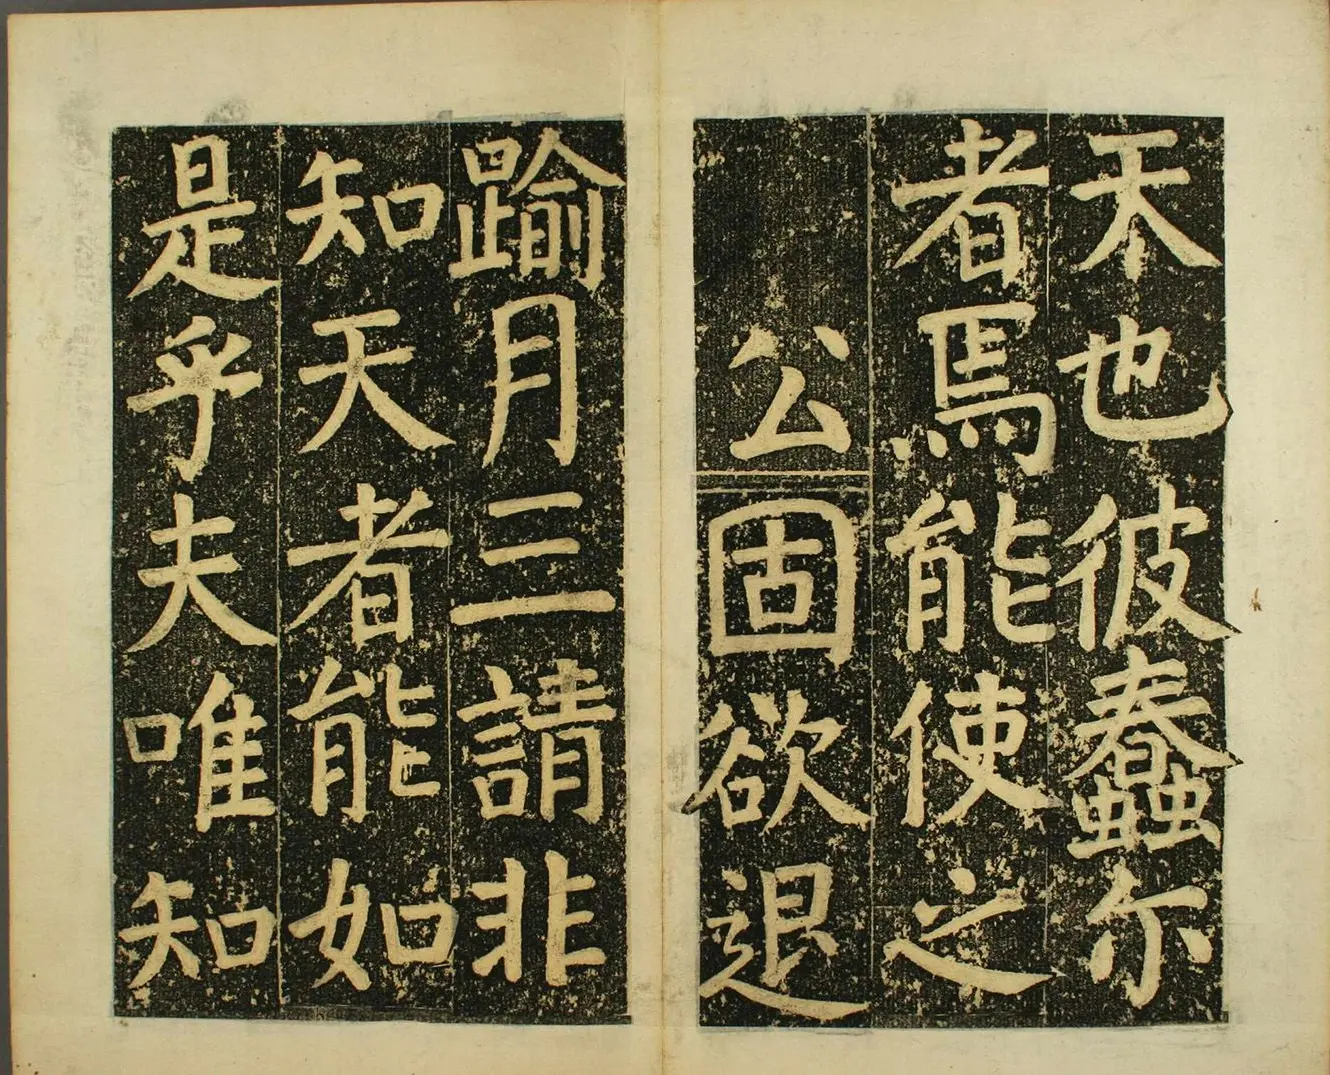 天也彼蠢尓
者焉能使之
公固欲退
踰月三請非
知天者能如
是乎夫唯知